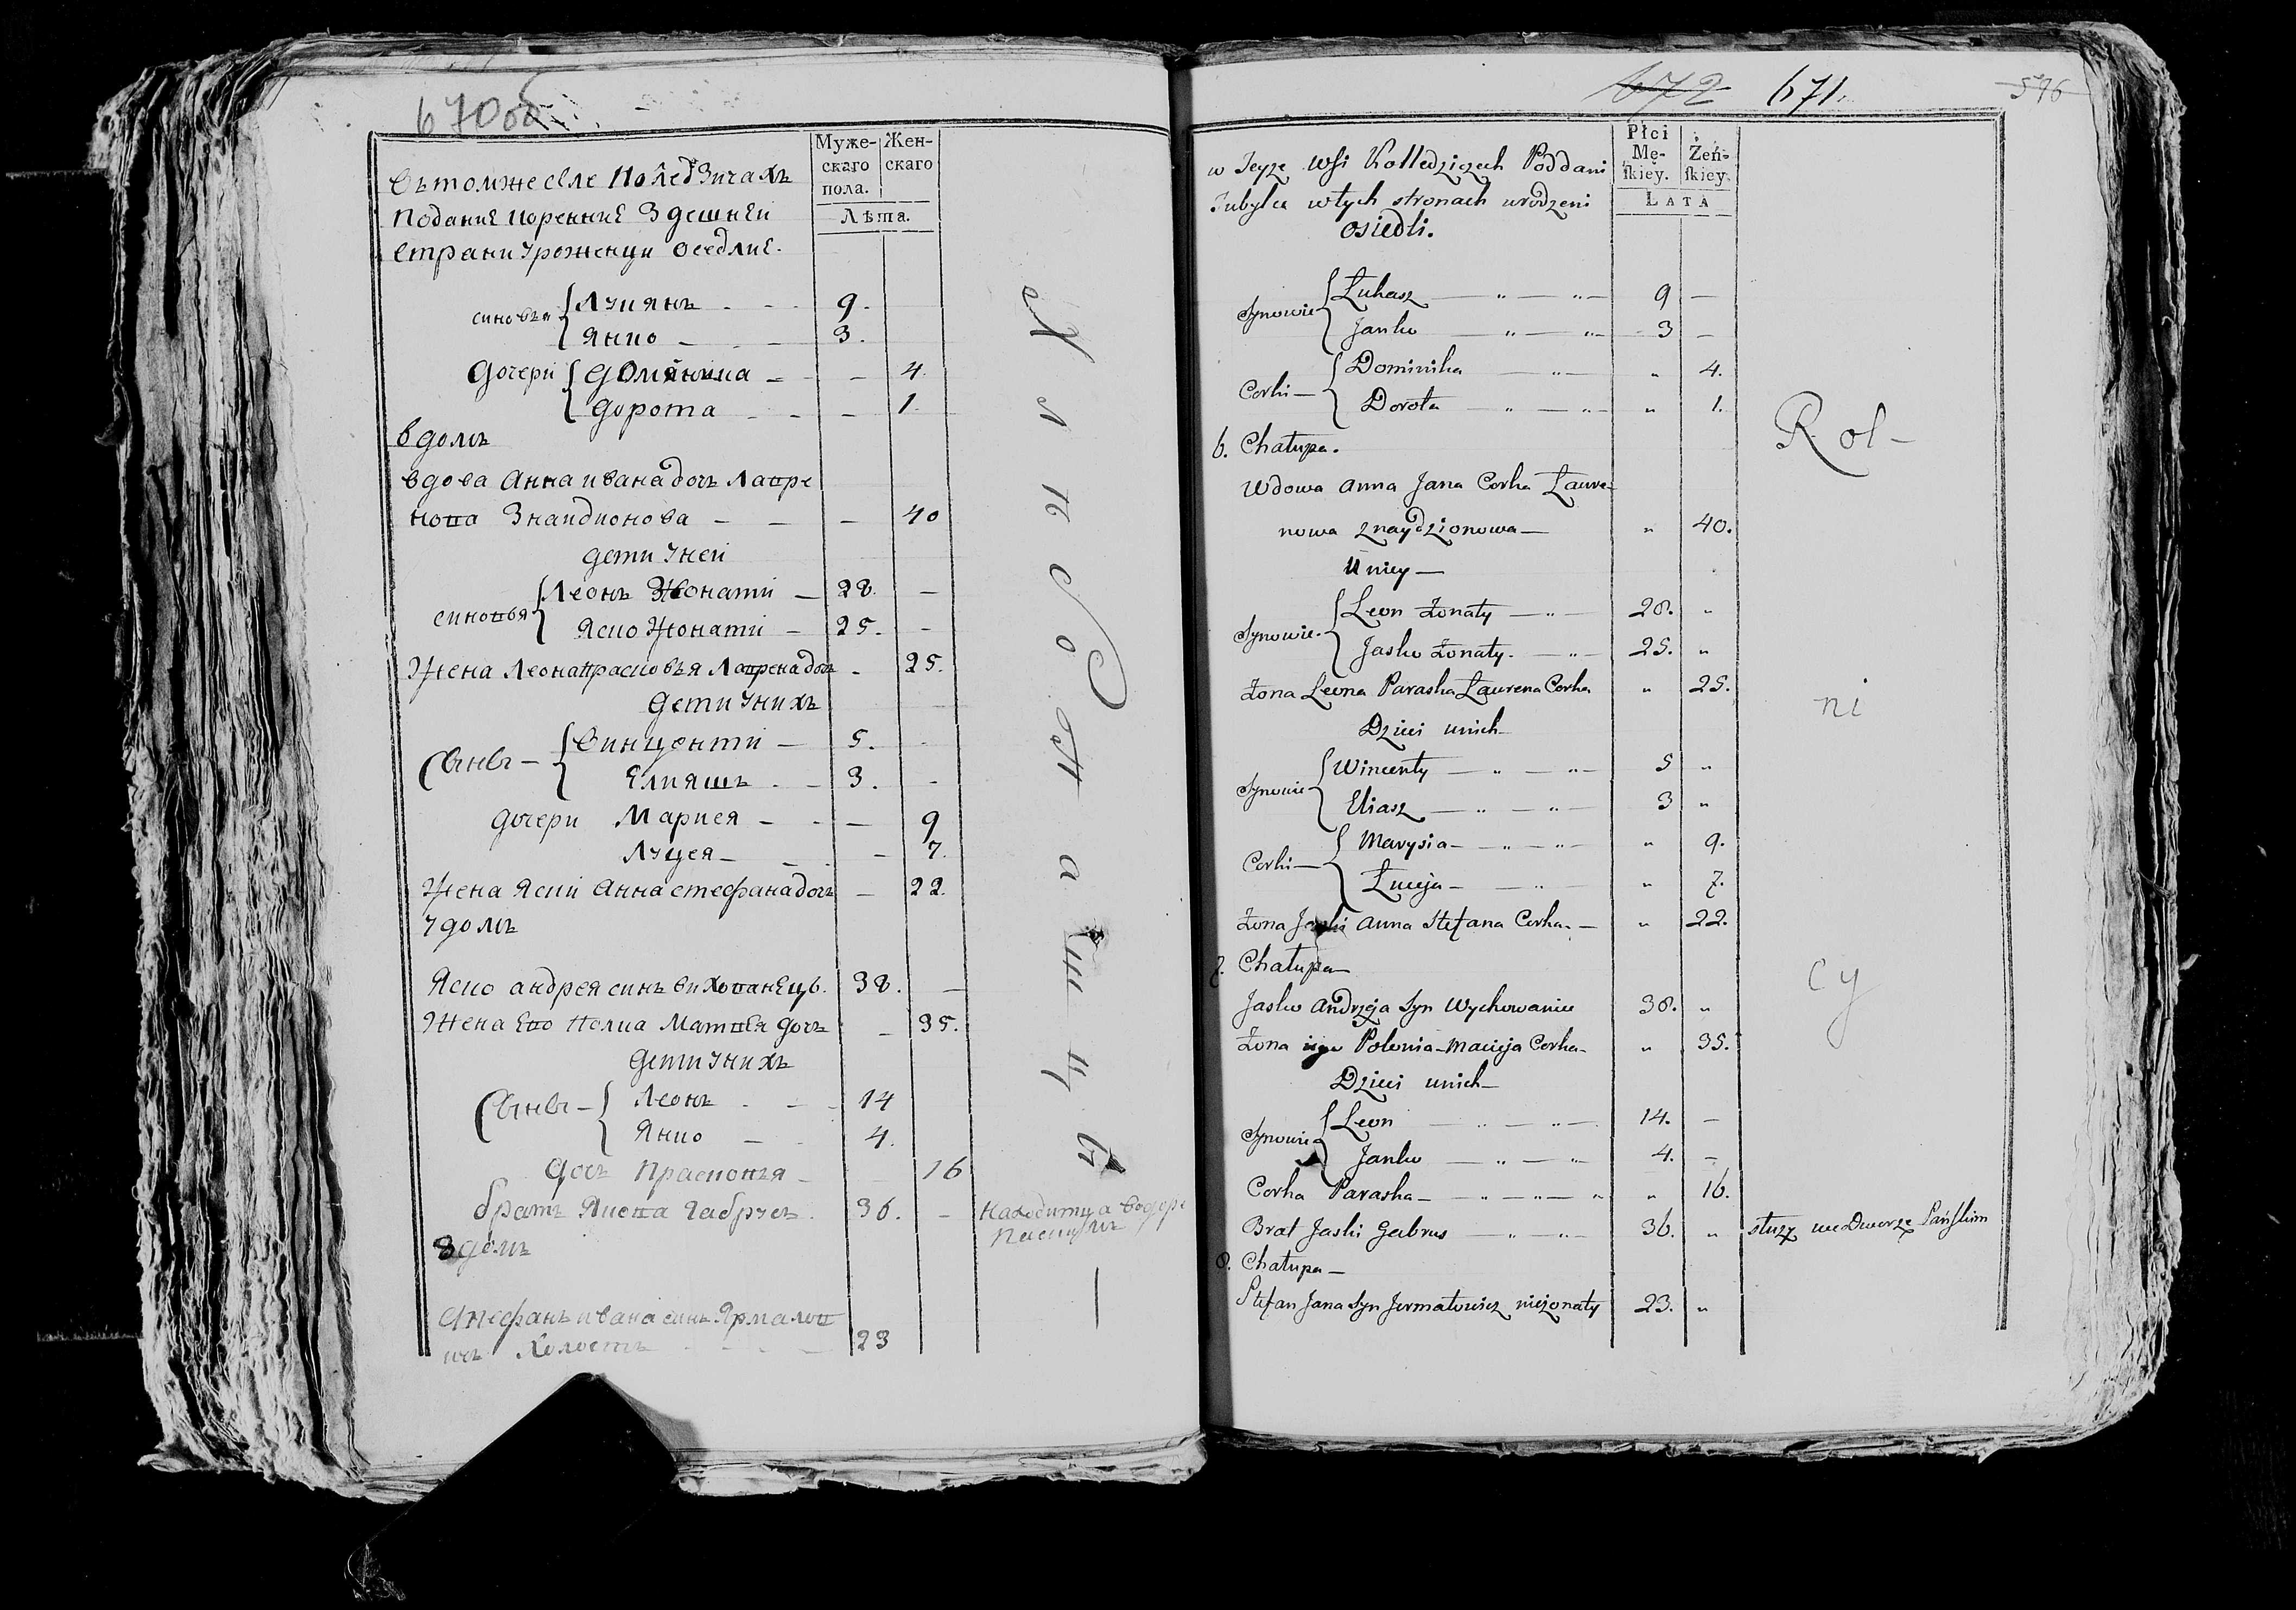 670 об
Муже-
скаго
пола.
Жен-
скаго
Лѣта.
Въ томже селе Коледзичахъ
Подание коренние здешней
страни уроженци оседлие.
синовья
Лукянъ 9.
Янко 3.
дочери
Доминика 4.
Дорота 1.
6 домъ
вдова Анна ивана дочь Лавре
нова Знайдионова 40
дети у ней
синовья
Леонъ Жонати 28.
Яско Жонати 25.
Жена Леона Прасковья Лаврена дочь 25.
дети у нихъ
Сынъ
Винценти 5.
Елияшъ 3.
дочери Марися 9
Луцея 7.
Жена Яски Анна стефана дочь 22.
7 домъ
Яско андрея синъ вихованецъ. 38.
Жена Ево Полиа Матвея дочь 35.
дети у нихъ
Сынъ
Леонъ 14
Янко 4.
дочь Прасковья 16
братъ Яскова Габрусь. 36. находитца
8 домъ
Стефанъ ивана синъ Ярмалов
ичъ Холостъ 23
672 671. 576
Płci
Mę-
ſkiey.
Żeń-
ſkiey.
LATA
w Teyże Wsi Kolledziczech Poddani
Tubylcy w tych stronach urodzeni
osiedli.
Synowie
Łukasz 9
Janko 3
Corki
Dominika 4.
Dorota 1.
6. Chałupa.
Wdowa Anna Jana Corka Łaure-
nowa Znaydzionowa 40.
U niey
Synowie
Leon Żonaty 28.
Jasko Żonaty. 25.
Żona Leona Paraska Łaurena Corka 25.
Dzieci u nich
Synowie
Wincenty 5
Eliasz 3
Corki
Marysia 9.
Łucija 7.
Żona Jaski Anna Stefana Corka 22.
7. Chałupa
Jasko Andrzeja Syn Wychowaniec 38.
Żona iego Polonia Macieja Corka 35.
Dzieci u nich
Synowie
Leon 14.
Janko 4.
Corka Paraska 16.
Brat Jaski Gabrus 36. służy we Dworze Pańſkim
8. Chałupa
Stefan Jana Syn Jermałowicz nieżonaty 23.
Rol-
ni
cy